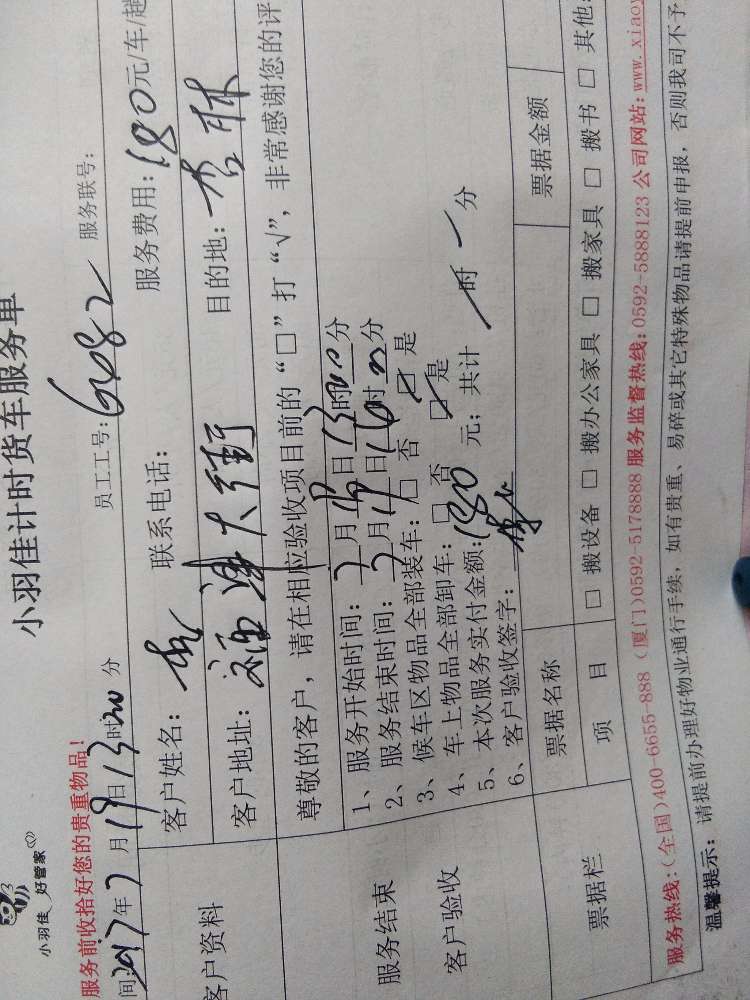 小羽佳 好管家
小羽佳计时货车服务单
服务前收拾好您的贵重物品!
员工工号: 6482 服务联号:
间: 2017年7月19日13时 分
客户资料
客户姓名: 联系电话: 服务费用: 180元/车/趟
客户地址: 大街 目的地: 杏林
尊敬的客户,请在相应验收项目前的“□”打“√”,非常感谢您的评
服务结束
客户验收
1、服务开始时间: 7月19日13时 分
2、服务结束时间: 7月19日16时 分
3、候车区物品全部装车: □ 否 ☑ 是
4、车上物品全部卸车: □ 否 ☑ 是
5、本次服务实付金额: 180 元; 共计 时 分
6、客户验收签字:
票据栏
票据名称 票据金额
项 目 □ 搬设备 □ 搬办公家具 □ 搬家具 □ 搬书 □ 其他:
服务热线:(全国)400-6655-888 (厦门)0592-5178888 服务监督热线:0592-5888123 公司网站:www.xiaoy
温馨提示: 请提前办理好物业通行手续,如有贵重、易碎或其它特殊物品请提前申报,否则我司不予